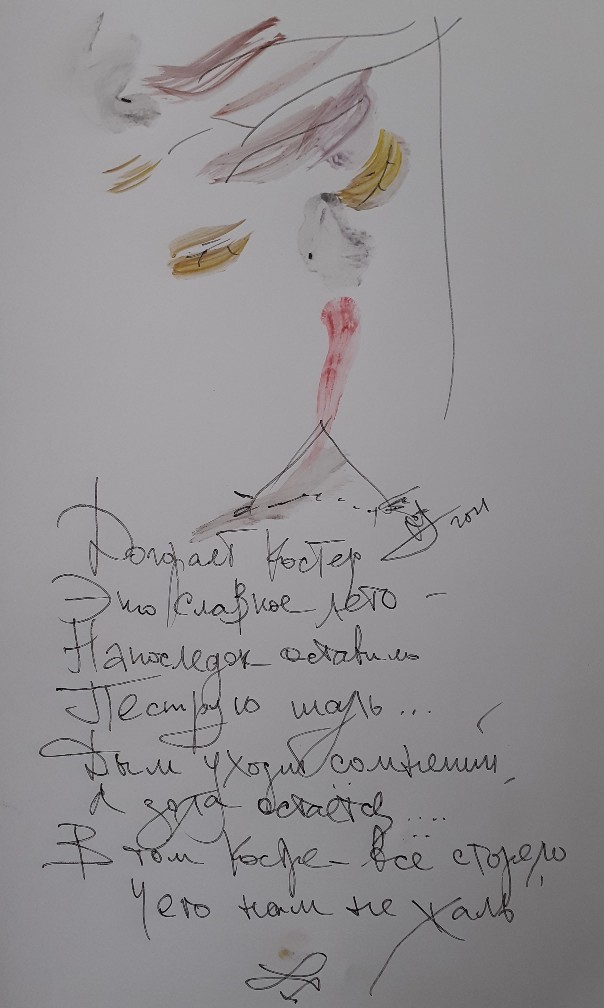 Догорает костёр
Это славное лето -
Напоследок оставило
Пеструю шаль...
Дым уходит сомнений,
А зола остаётся....
В том костре - всё сгорело
Чего нам не жаль